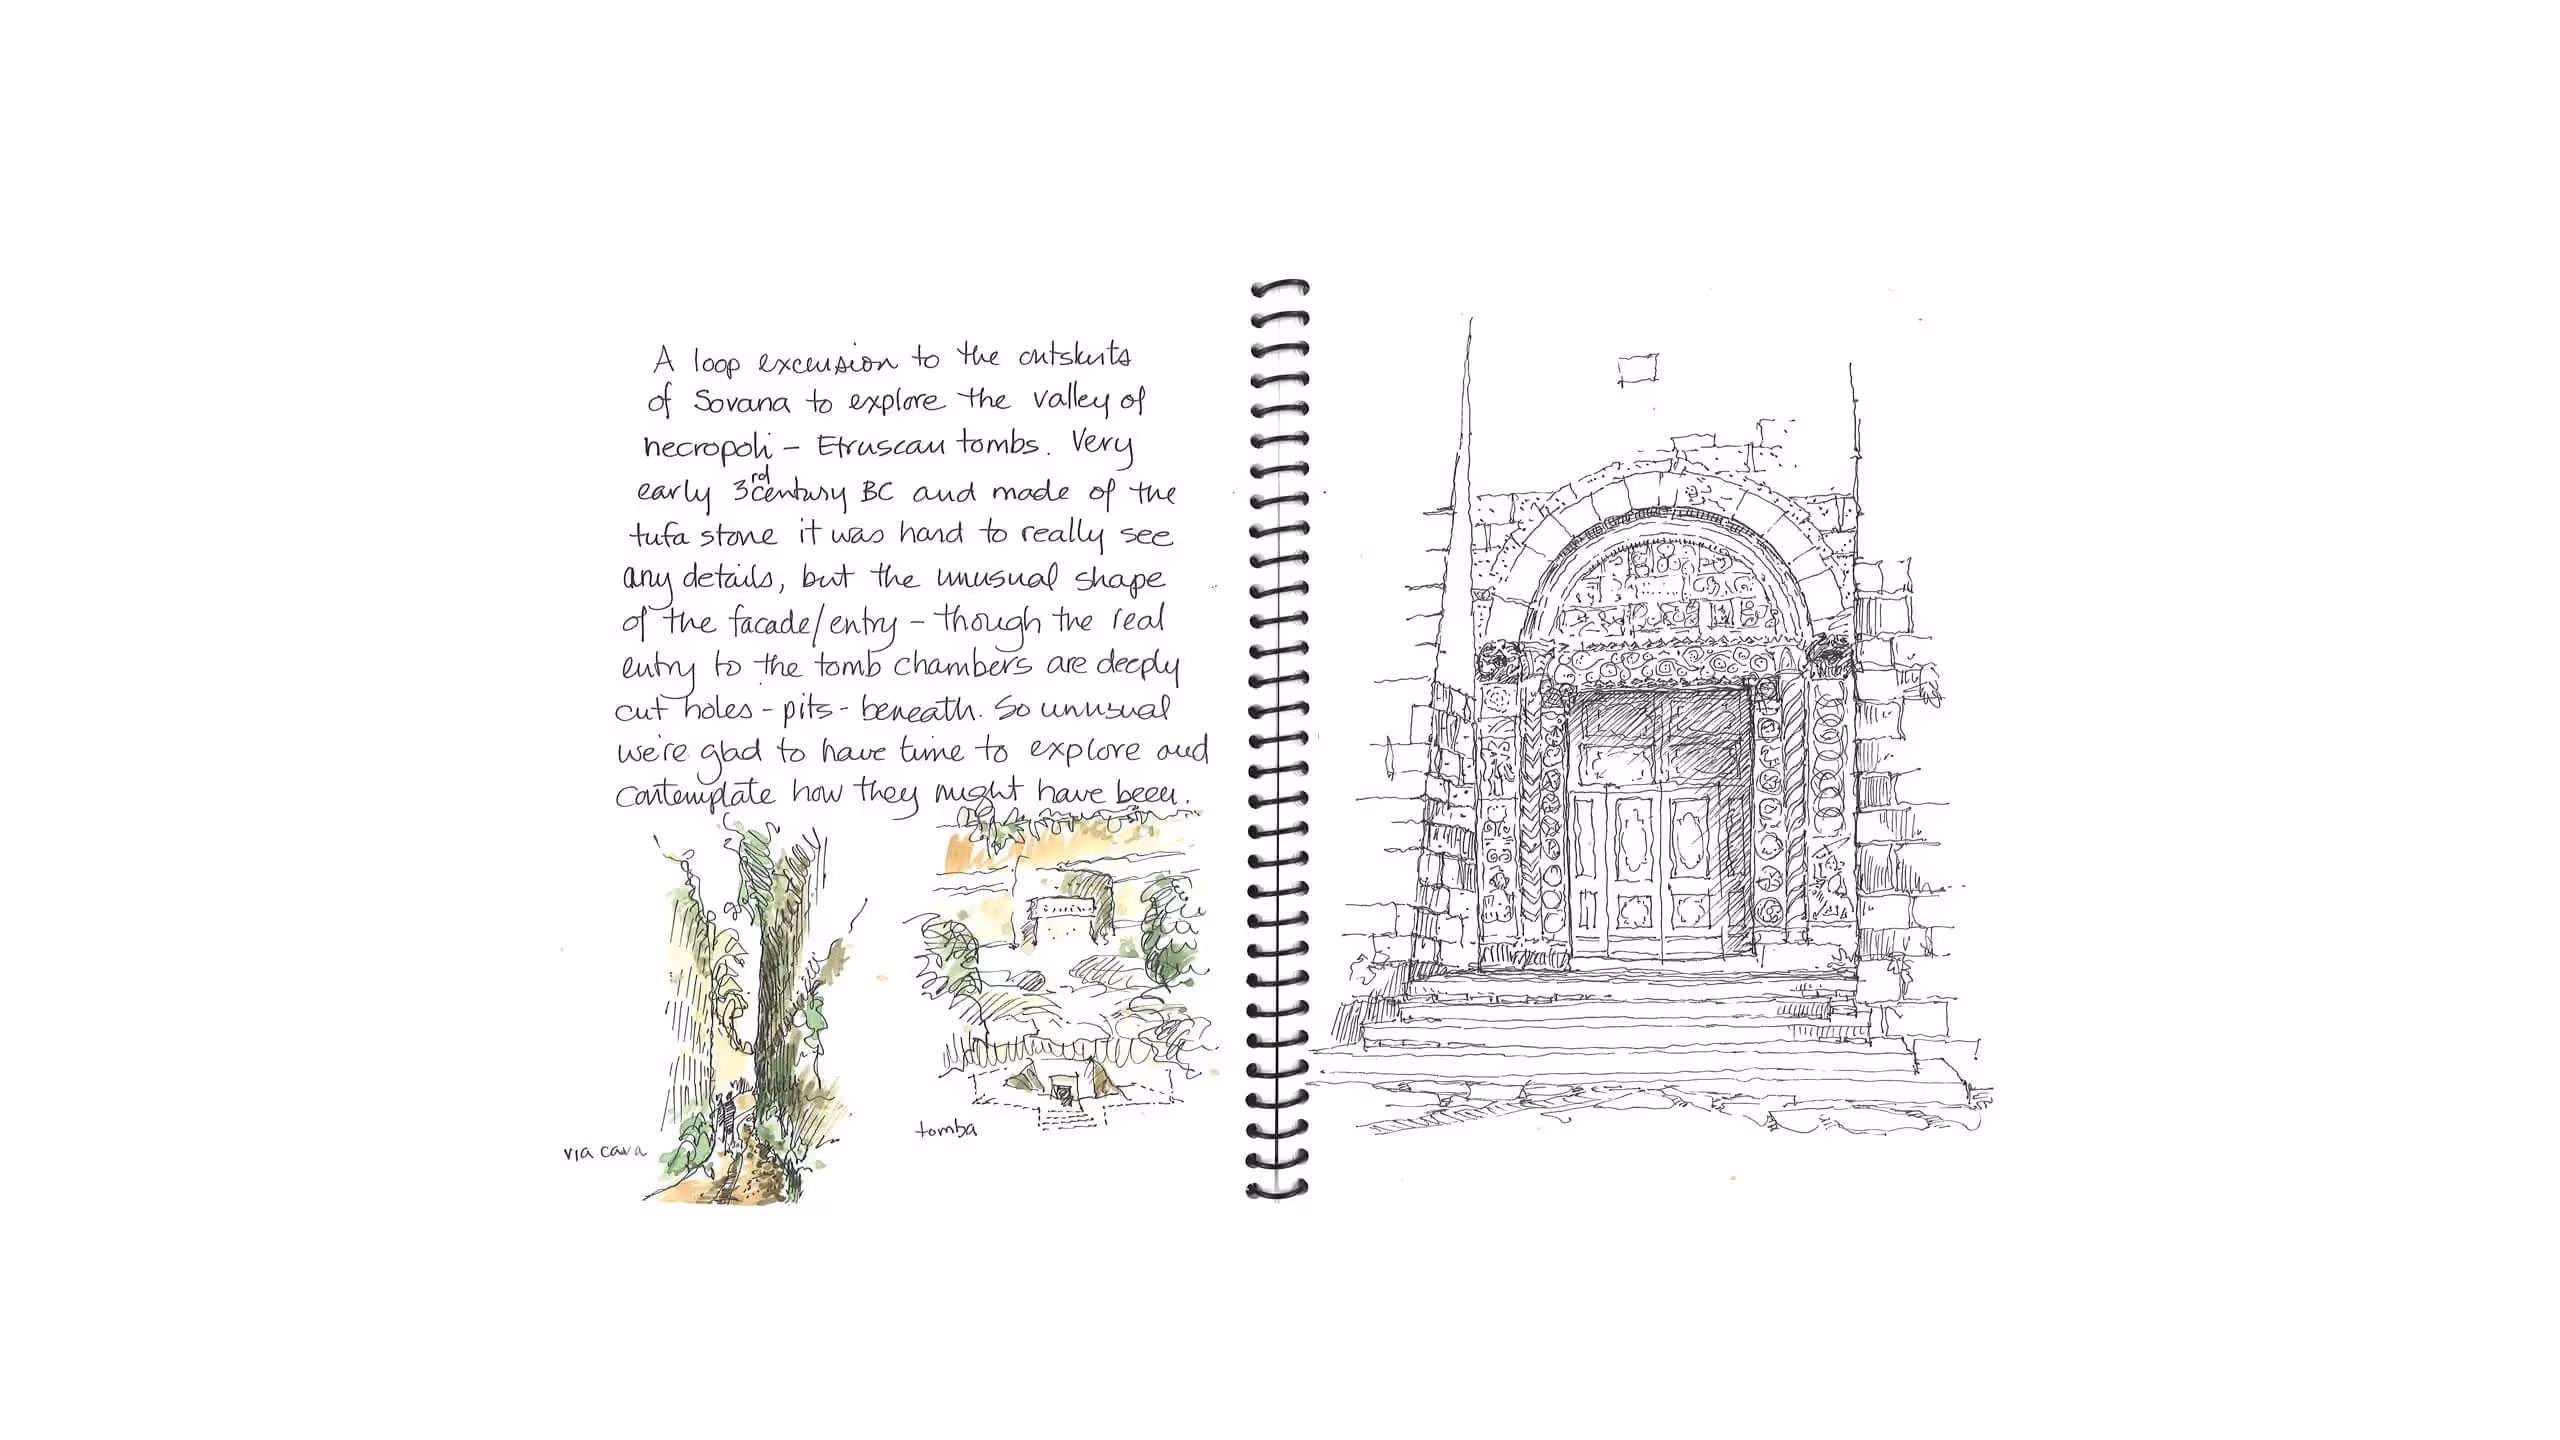 A loop excursion to the outskirts
of Sovana to explore the valley of
necropoli – Etruscan tombs. Very
early 3rd century BC and made of the
tufa stone it was hard to really see
any details, but the unusual shape
of the facade/entry – though the real
entry to the tomb chambers are deeply
cut holes - pits - beneath. So unusual
we're glad to have time to explore and
contemplate how they might have been.
via cava
tomba